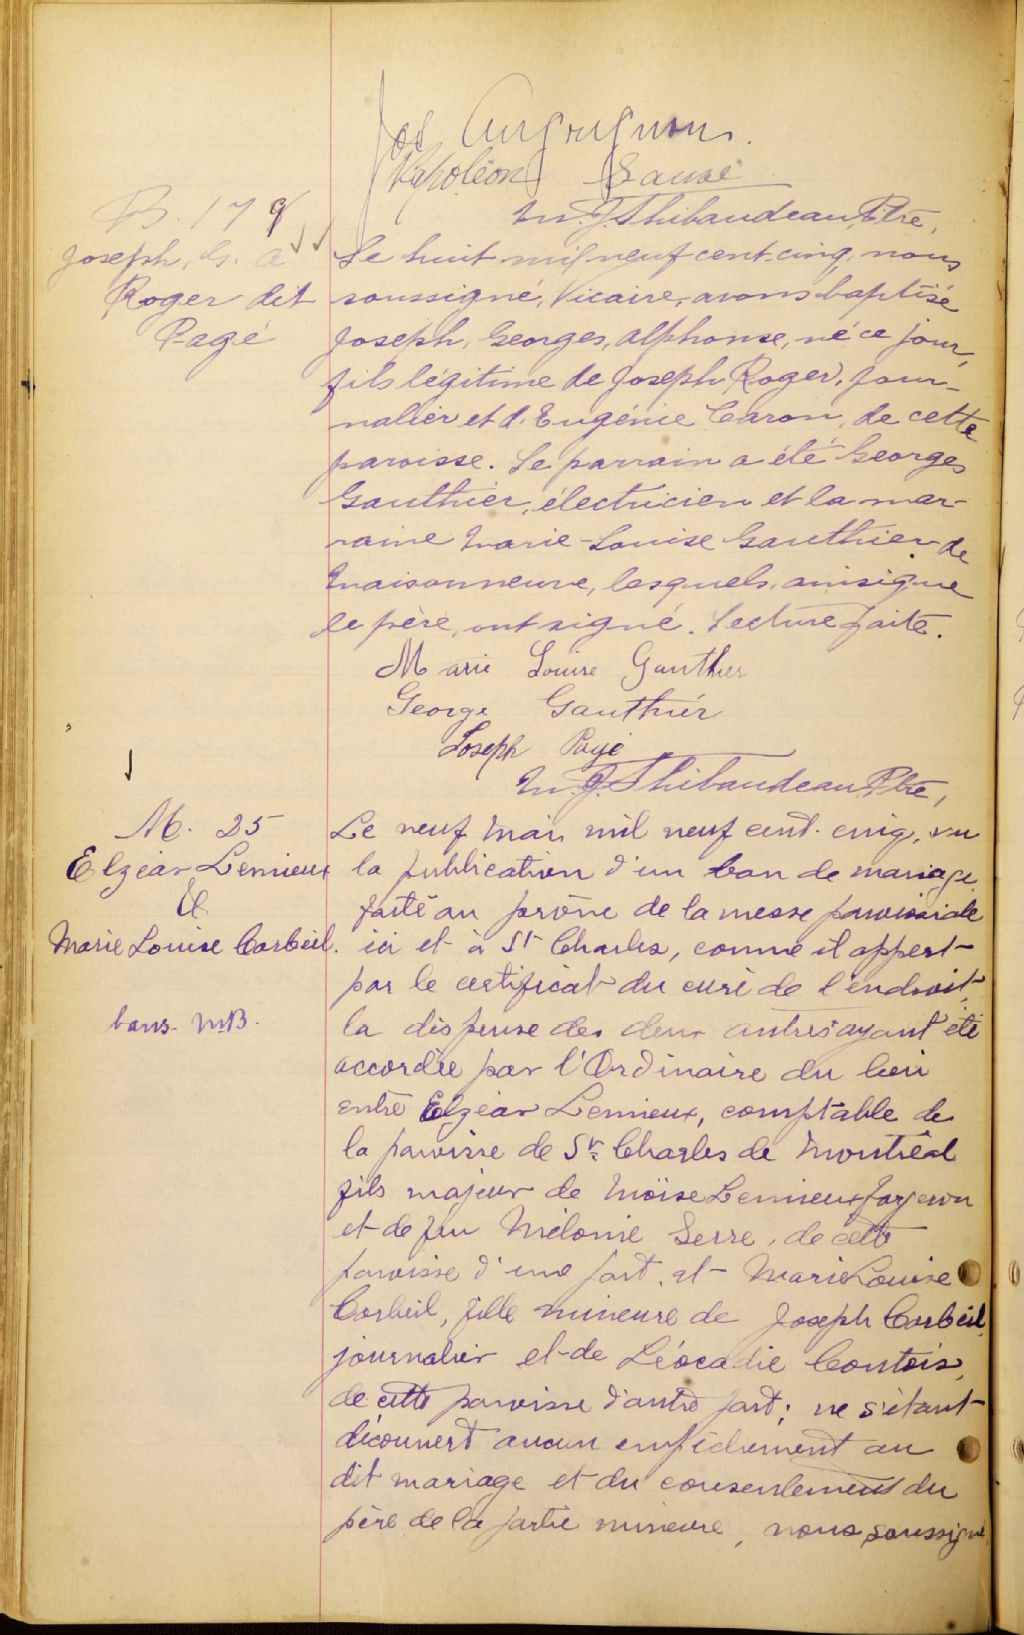 Jos Angrignon.
Napoléon Sauvé
M. J. Thibaudeau, Ptre,
B. 179
Joseph, G. A
Roger dit
Pagé
Le huit mil neuf cent-cinq, nous
soussigné, Vicaire, avons baptisé
Joseph, Georges, Alphonse, né ce jour,
fils légitime de Joseph Roger, jour-
nalier et d'Eugénie Caron, de cette
paroisse. Le parrain a été Georges
Gauthier, électricien et la mar-
raine Marie-Louise Gauthier de
Maisonneuve, lesquels, ainsi que
le père, ont signé. Lecture faite.
Marie Louise Gauthier
George Gauthiér
Joseph Pagé
M. J. Thibaudeau, Ptre,
M. 25
Elzéar Lemieux
&
Marie Louise Corbeil.
bans
Le neuf Mai mil neuf cent-cinq, vu
la publication d'un ban de mariage
faite au prône de la messe paroissiale
ici et à St Charles, comme il appert
par le certificat du curé de l'endroit,
la dispense des deux autres ayant été
accordée par l'Ordinaire du lieu
entre Elzéar Lemieux, comptable de
la paroisse de St Charles de Montréal
fils majeur de Moïse Lemieux forgeron
et de feu Mélonie Serre, de cette
paroisse d'une part, et Marie Louise
Corbeil, fille mineure de Joseph Corbeil,
journalier et de Léocadie Contois,
de cette paroisse d'autre part; ne s'étant
découvert aucun empêchement au
dit mariage et du consentement du
père de la partie mineure, nous soussigné,